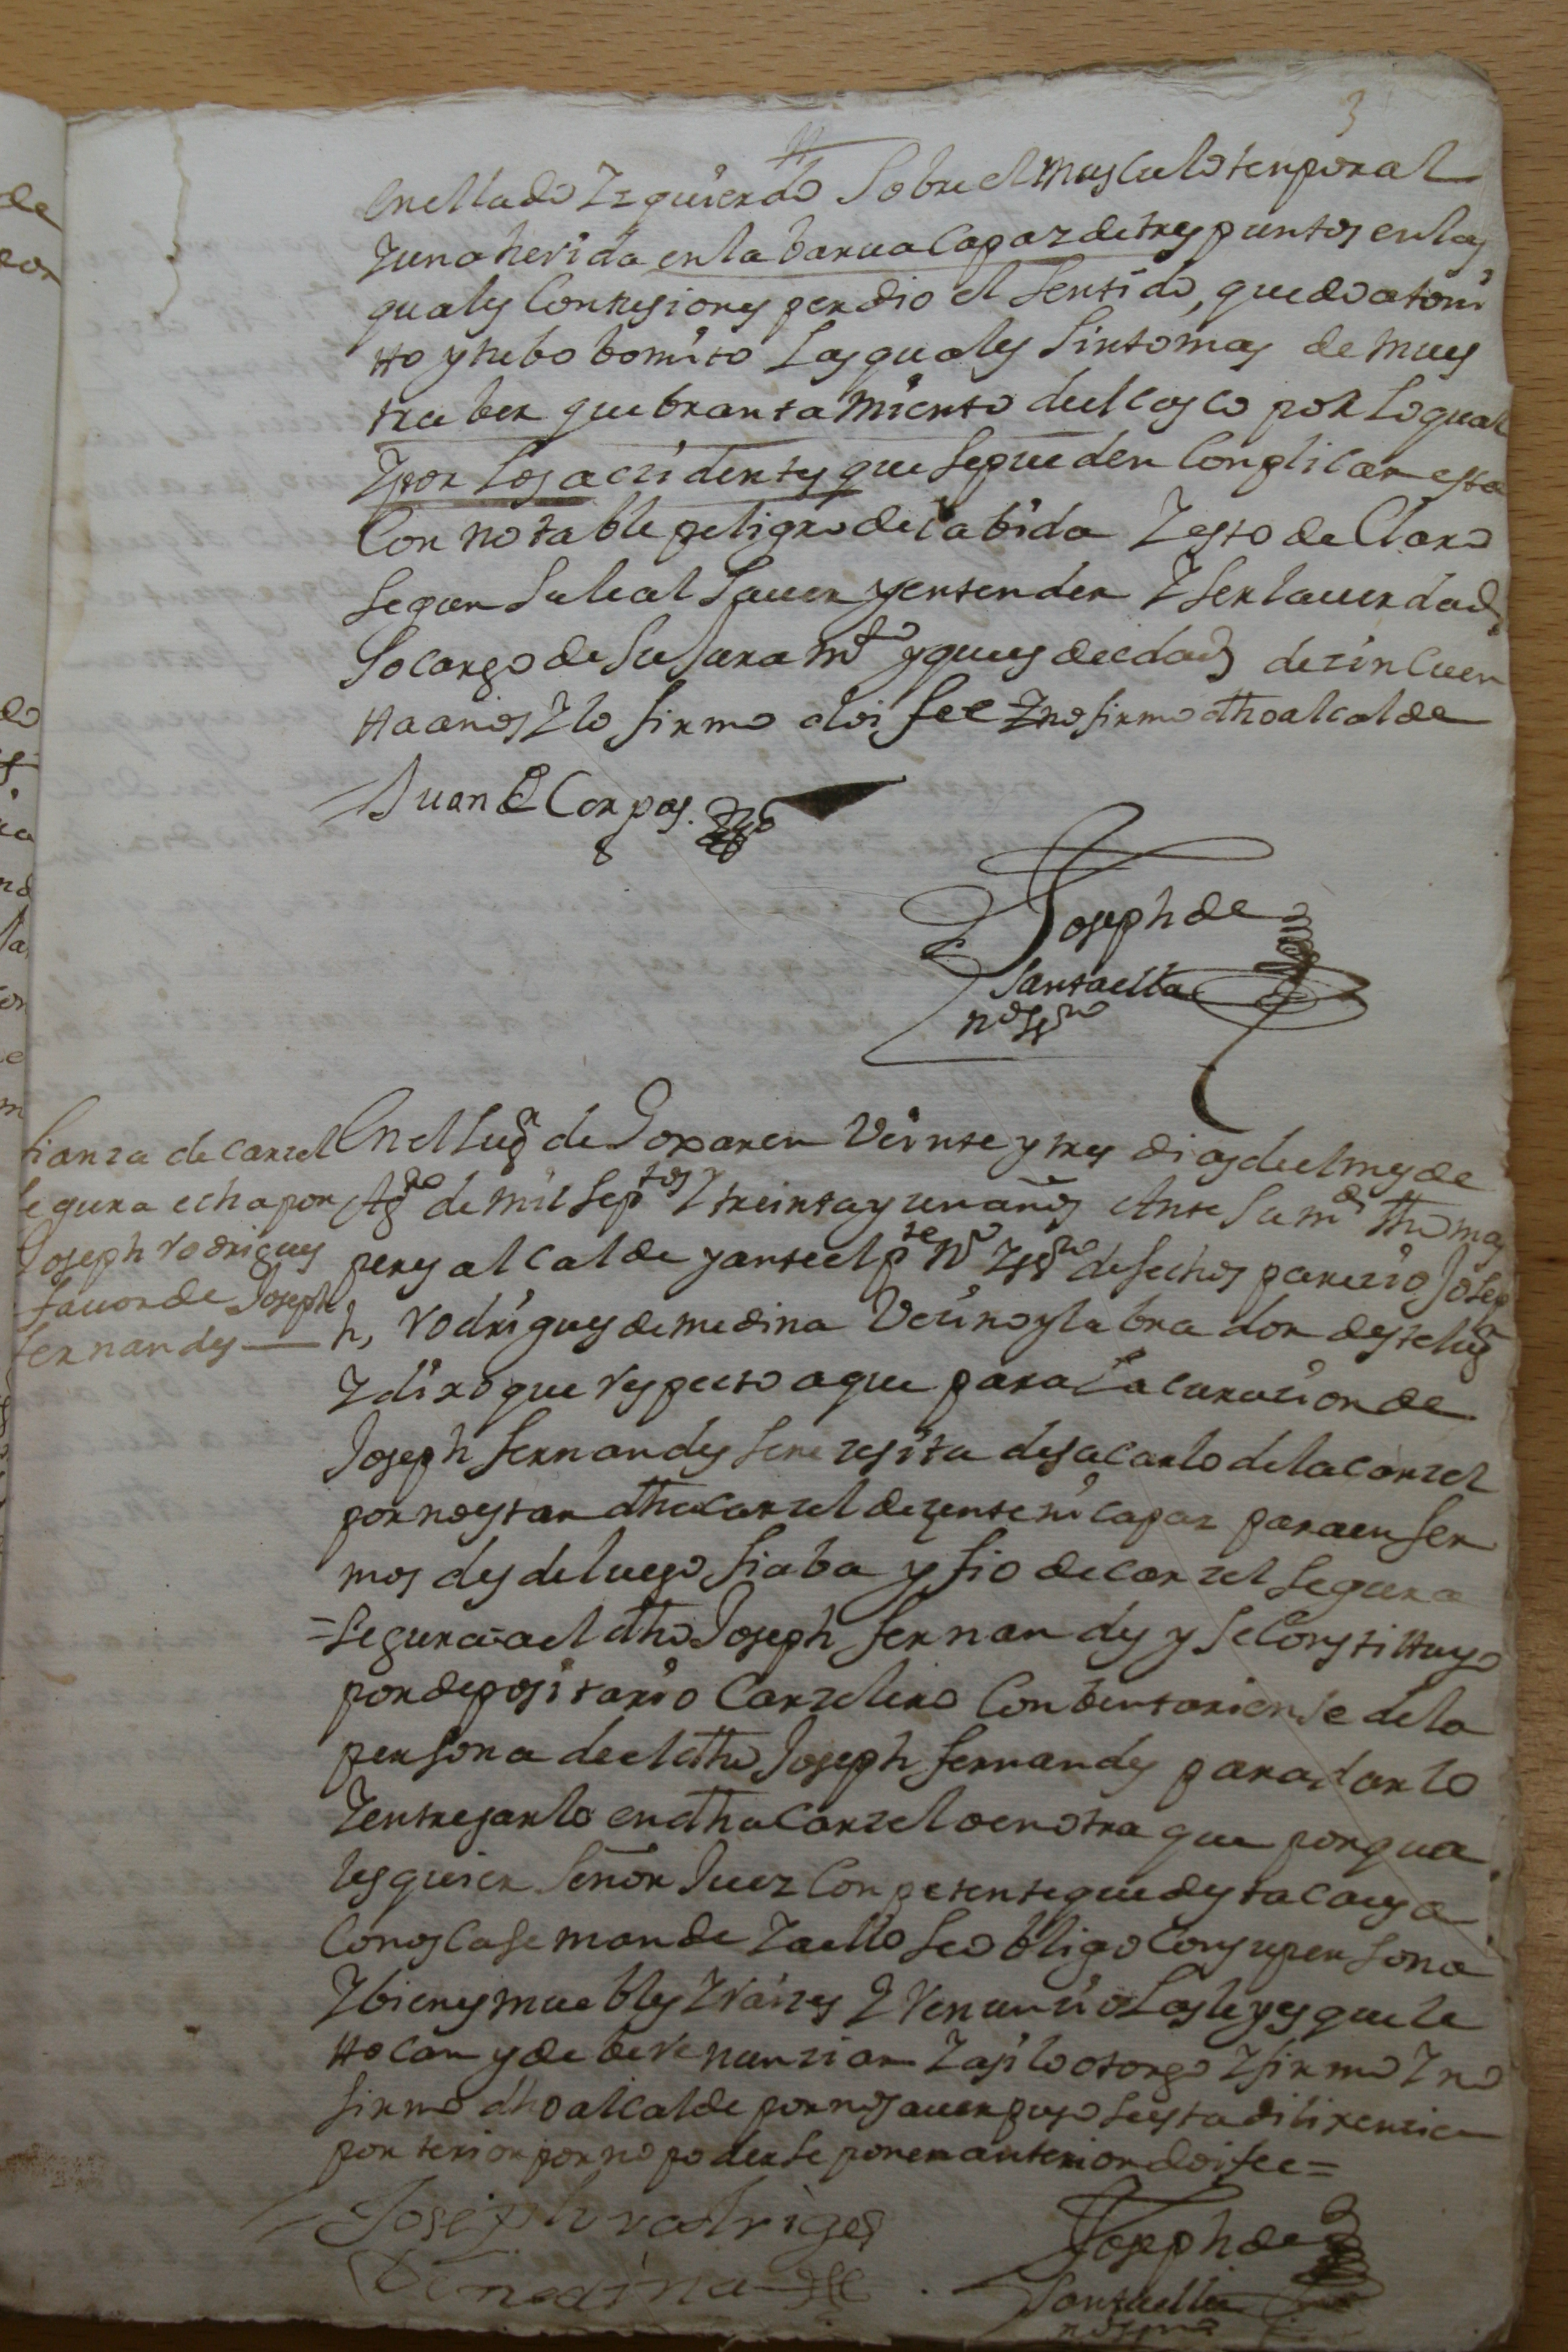 3
en el lado Izquierdo Sobre el musculo tenporal
Y una herida en la barua capaz de tres puntos en las
quales Contusiones perdio el Sentido, quedo atoni
tto y tubo bomito Las quales Sintomas de mues
tra ber quebrantamiento del casco por Lo qual
Y por Los aczidentes que Se pueden Conplicar esta
Con notable peligro de la bida Y esto de Claro
Segun Su leal Sauer y entender Y Ser la uerdad
So cargo de Su Juramto y que es de edad de zinCuen
tta años Y lo firmo doi fee Y no firmo dho alcalde
Juan de Corpas.
Joseph de
Santaella
no sspno
fianza de carzel
segura echa por
Joseph rodrigues
fauor de Joseph
fernandes
En el lugr de Goxar en Veinte y tres dias del mes de
Agto de mil septos Y treinta y un años Ante Su md Thomas
peres alcalde y ante el pte no Y sspno de fechos parezio Josep
h, rodrigues de medina Vezino y labrador deste lugr
Y dixo que respecto a que para La curazion de
Joseph fernandes Se nezesita de sacarlo de la carzel
por no estar dha carzel dezente ni capaz para enfer
mos desde luego fiaba y fio de carzel segura
=segura=a el dho Joseph fernandes y Se Constittuyo
por depositario Carzelero Conbentariense de la
persona de el dho Joseph fernandes para darlo
Y entregarlo en dha Carzel o en otra que por qua
lesquier Señor Juez Conpetente que desta causa
Conosca se mande Y a ello Se obligo Con su persona
Y bienes muebles Y raizes Y renunzio Las leyes que le
ttocan y debe renunziar Y asi lo otorgo Y firmo Y no
firmo dho alcalde por no sauer puso se esta dilixenzia
porterior por no poderse poner anterior doi fee=
Joseph rodriges
De medina
Joseph de
Santaella
no sspno